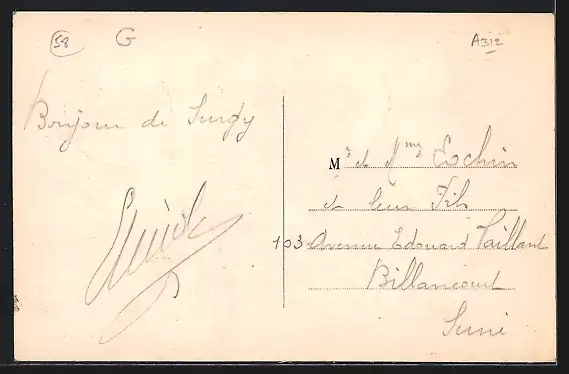 58
G
A312
Bonjour de Surgy
Mr et Mme Cochin
et leur Fils
103 Avenue Edouard Vaillant
Billancourt
Seine